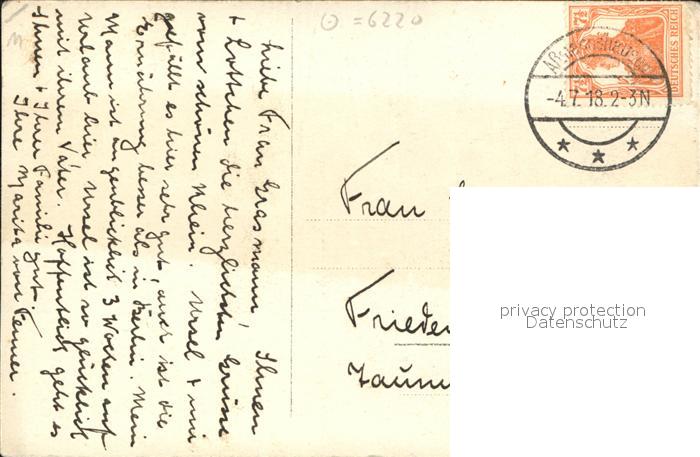 Liebe Frau Grasmann! Ihnen
+ Lottchen die herzlichsten Grüsse
vom schönen Rhein. Ursel + mir
gefällt es hier sehr gut, auch ist die
Ernährung besser als in Berlin. Mein
Mann ist augenblickl. 3 Wochen auf
Urlaub hier. Ursel ist so glücklich
mit ihrem Vater. Hoffentlich geht es
Ihnen + Ihrer Familie gut.
Ihre Marita von
=6220
7½ 7½
DEUTSCHES REICH
-4.7.18.2-3N
Frau
Frieden
Taunu
privacy protection
Datenschutz